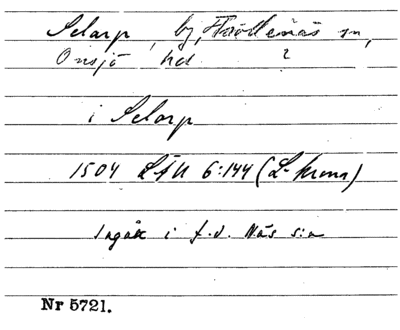 Selarp, by, Trollenäs sn,
Onsjö hd ?
i Selarp
1504 LÄU 6:144 (L-krona)
Ingår i f.d. Näs s:n
Nr 5721.